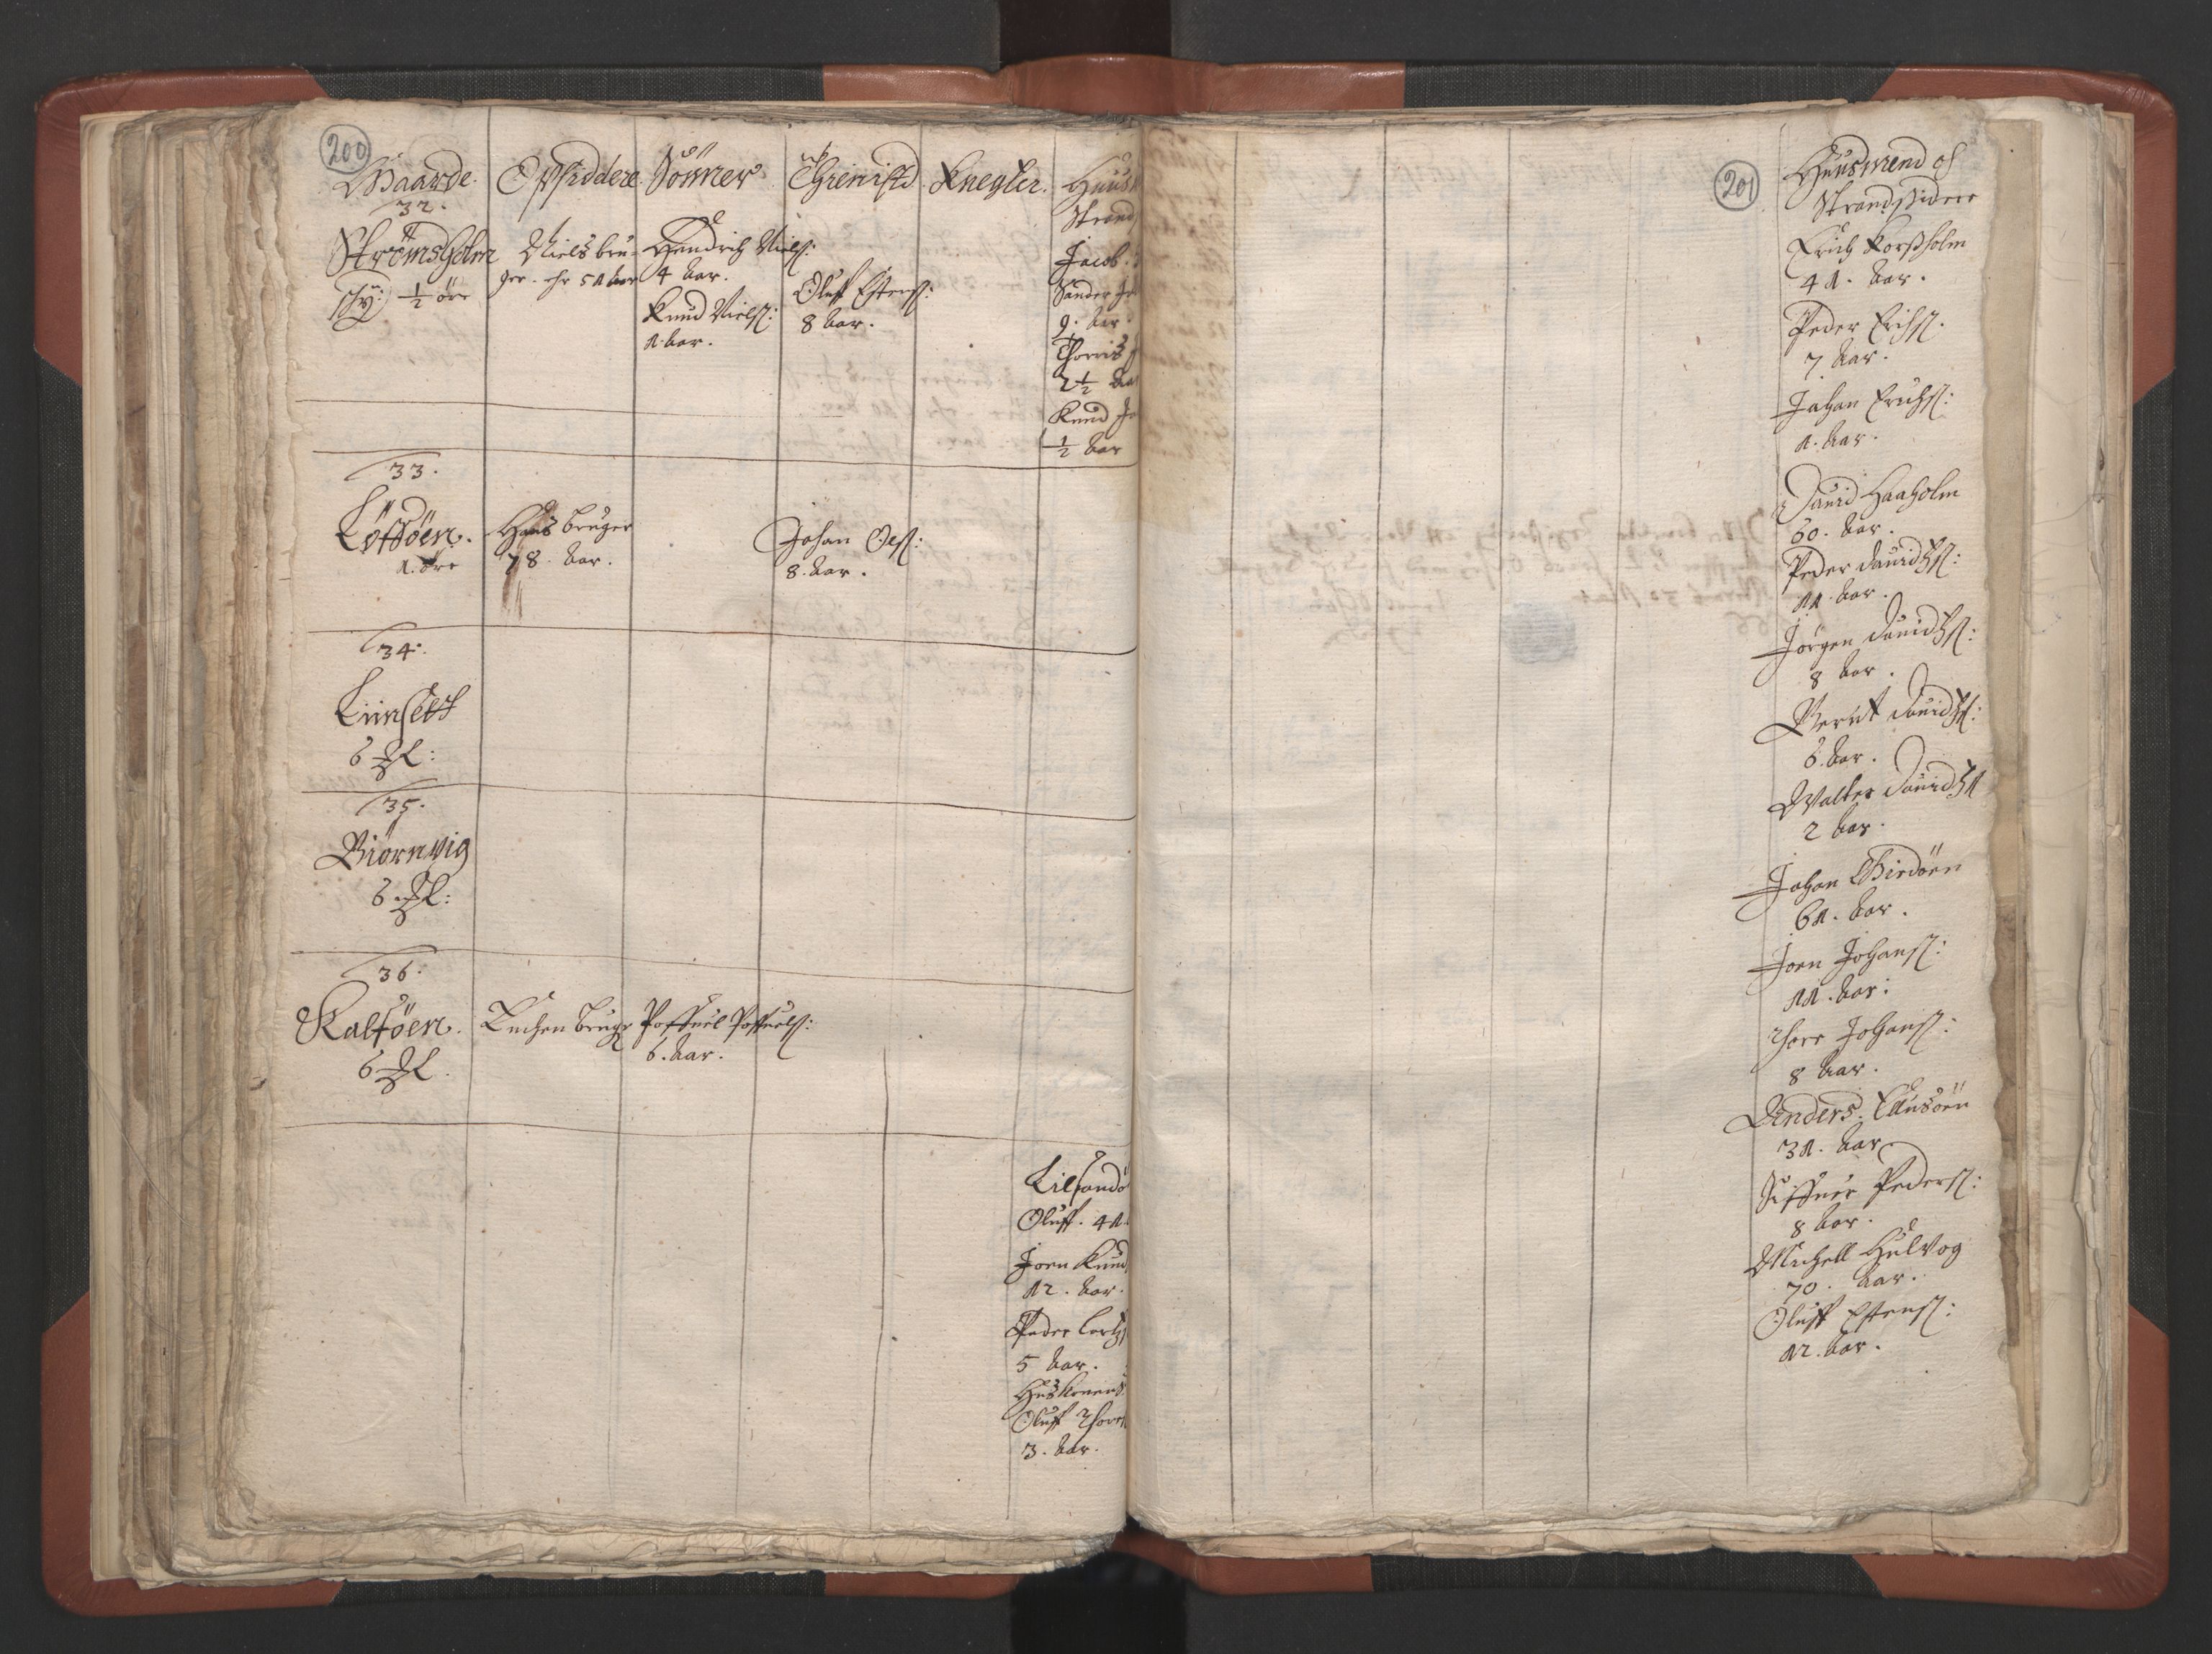 200
Gaarde. Opsiddere Sönner Thienistd Knegter. Huus
Strand
32.
Strömsholm
schÿ: ½ öre
Niels bru-
ger. ehr 51 aar
Hendrich Nielß:
4 aar.
Knud Nielß:
1. aar.
Oluff Estenß:
8 aar.
Jacob.
Sander Ja
9. aar.
Thorris
2½ aar
Knud Ja
½ aar
33.
Löttöen.
1. öre
Hans bruger
78. aar.
Johan Oelß:
8. aar.
34.
Liinsett
6 :
35.
Biörnvig
6 :
36.
Kaltöen.
6 .
Enchen brugr
Poffuel Poffuelß:
6. aar.
Lilsandö
Oluff. 41.
Joen Knud
12. aar.
Peder
5 aar.
Huskonens
Oluff Thore
3. aar.
201
Huusmend of
Strandsidere
Erich Korßholm
41. aar.
Peder Erichß.
7 aar.
Johan Erichß:
1. aar.
Dauid Haaholm
60. aar.
Peder Dauidsß:
11. aar.
Jörgen Dauidsß:
8 aar.
Bernt Dauidsß:
6. aar.
Walter Dauidsß
2 aar.
Johan Birdöen
61. aar.
Joen Johanß:
11. aar:
Thore Johanß:
8 aar.
Anders.
31. aar.
Giffuer Pederß:
8 aar.
Michell Hulvog
70. aar.
Oluff Estenß:
12. aar.